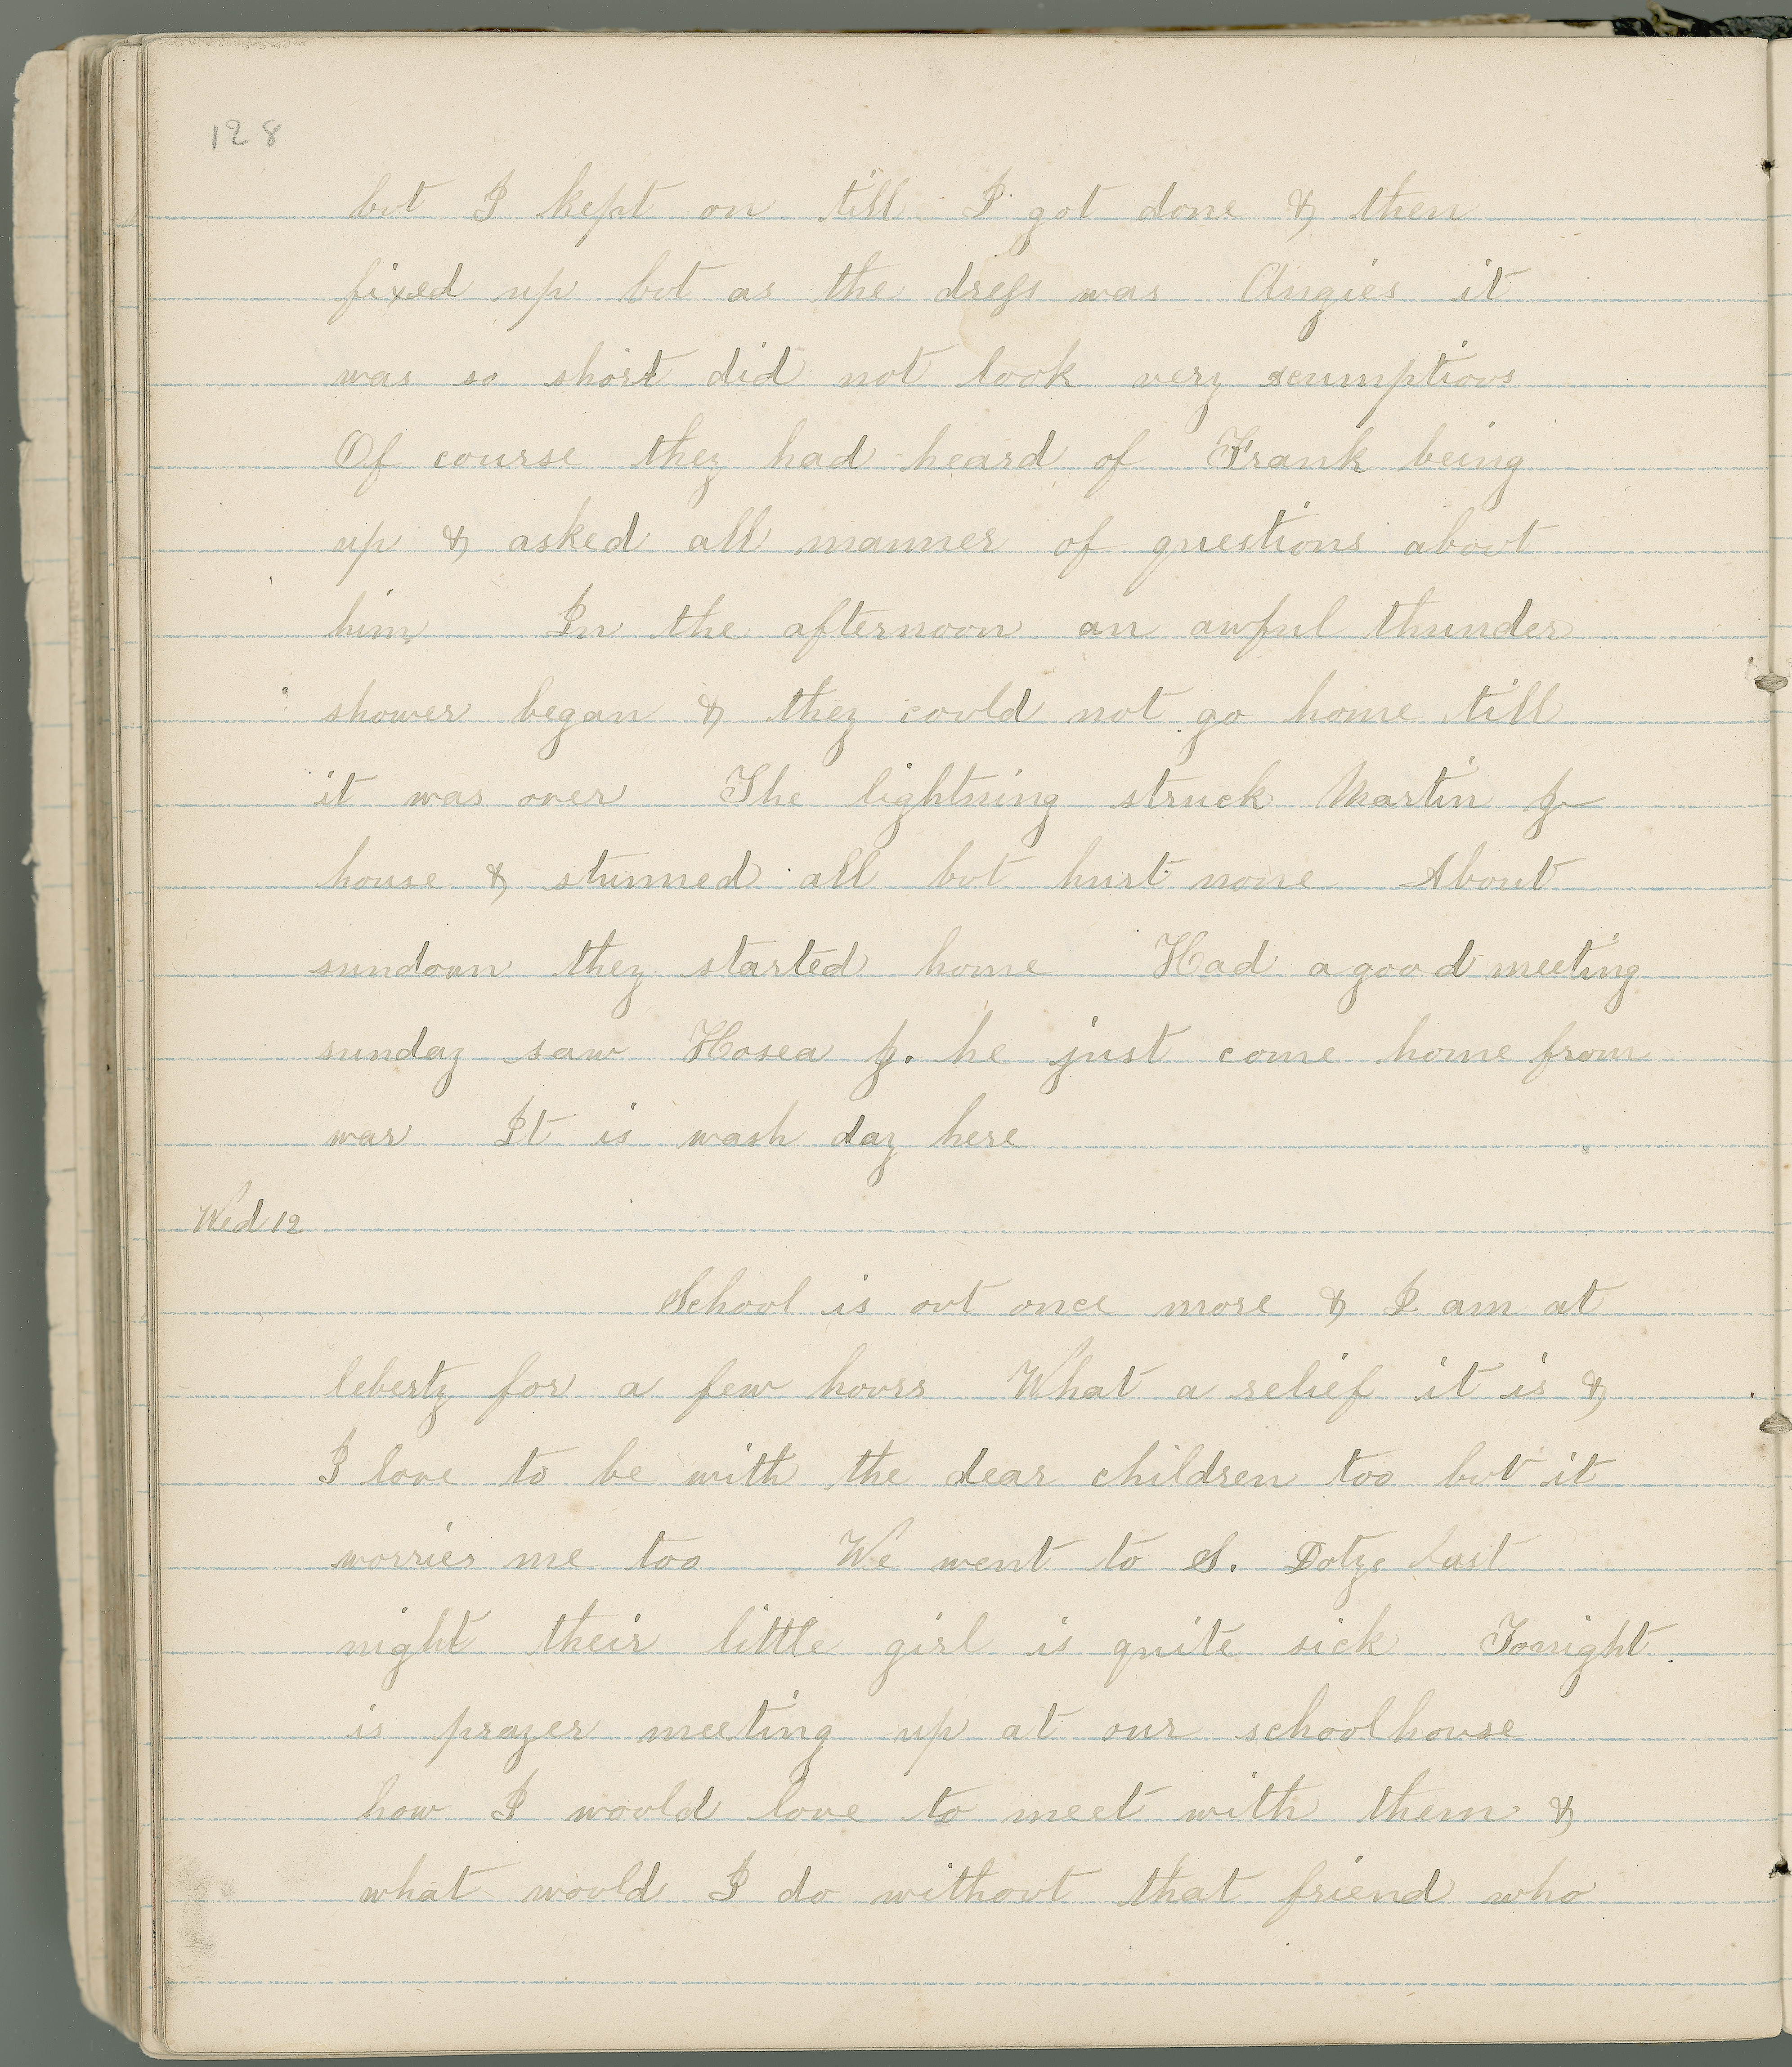 128
but I kept on till I got done & then
fixed up but as the dress was Angies it
was so short did not look very scumptious
Of course they had heard of Frank being
up & asked all manner of questions about
him In the afternoon an awful thunder
shower began & they could not go home till
it was over The lightning struck Martin
house & stunned all but hurt none About
sundown they started home Had a good meeting
sunday saw Hosea he just come home from
war It is wash day here
Wed 12
School is out once more & I am at
leberty for a few hours What a relief it is &
I love to be with the dear children too but it
worries me too We went to S. last
night their little girl is quite sick Tonight
is prayer meeting up at our schoolhouse
how I would love to meet with them &
what would I do without that friend who